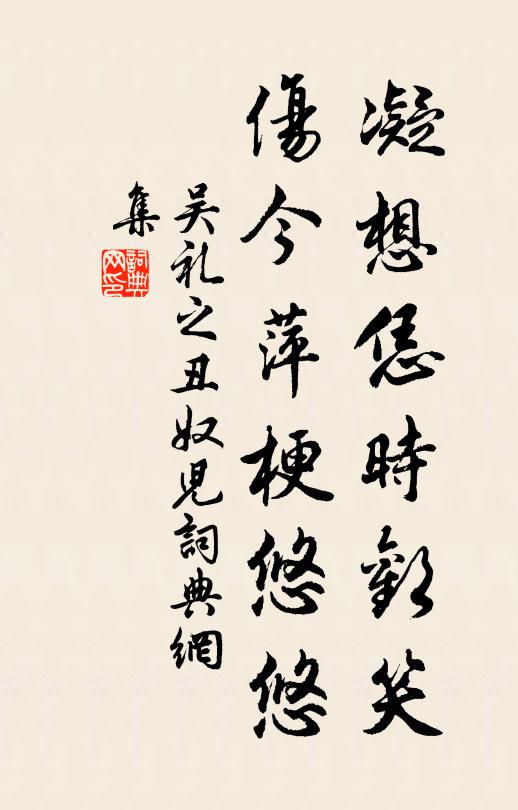 凝想恁時歡笑
傷今萍梗悠悠
吴礼之丑奴児詞典網
集
詞典
网印